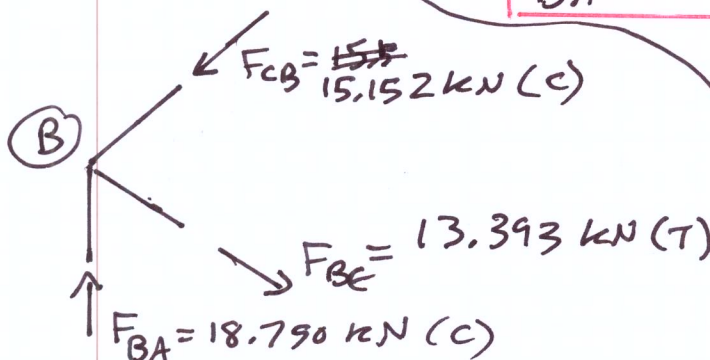 F_CB = 15.152 kN (C)
B
F_BE = 13.393 kN (T)
F_BA = 18.790 kN (C)